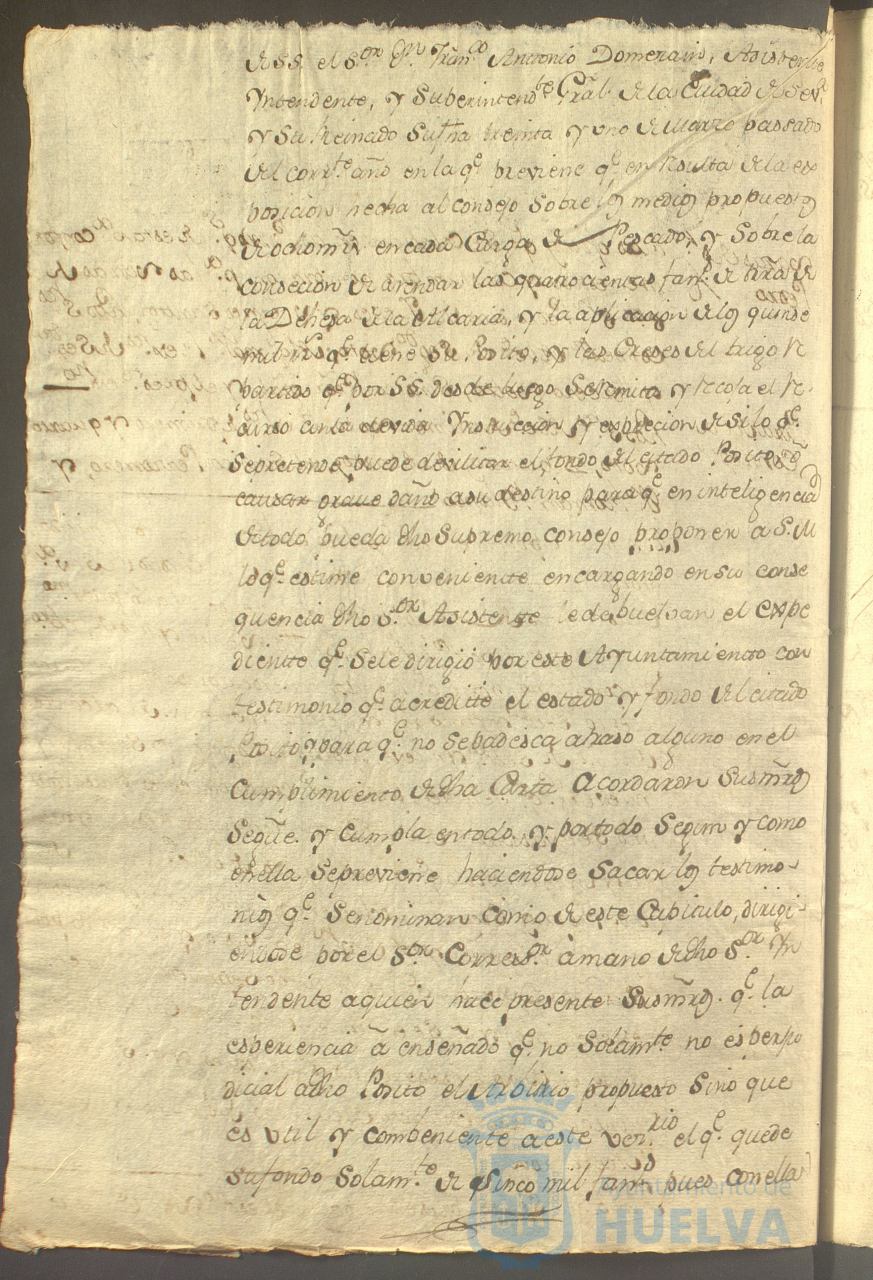 de SS. el S.or D.n Fran.co Antonio Domezain, Asistente
Yntendente, y Superintend.te Gral. de la Ciudad de Sev.a
y Su Reinado Su fha treinta y uno de Marzo passado
del corr.te año en la q.e previene q.e en resulta de la ex
posicion hecha al consejo Sobre los medios propuestos
de ocho mrs. en cada Carga de Pescado, y Sobre la
consecion de arendar las quatrocientas fan.s de tierra de
la Dehesa de la Alcaria, y la aplicacion de los quinse
mil rrs q.e tiene su Posito, y las Creses del trigo re
partido q.e por SS. desde luego Se remita
curso con la devida Ynstruccion y exprecion de si lo q.e
Se pretende puede devilitar el fondo del citado Posito, ô
causar grave daño a su destino para q.e en inteligencia
de todo pueda dho Supremo consejo proponer a S. M
lo q.e estime conveniente encargando en su conse
quencia dho S.or Asistente le debuelvan el expe
diente q.e Se le dirigió por este Ayuntamiento con
testimonio q.e acreditte el estado y fondo del citado
Posito y para q.e no Se padesca atraso alguno en el
cumplimiento de dha Carta Acordaron Susmrds
Se gũe. y cumpla en todo, y por todo Segun y como
en ella Se previene haciendose Sacar los testimo-
nios q.e Se nominan como de este Cabildo, dirigi-
endose por el S.or Correg.or à mano de dho S.or Yn
tendente a quien hace presente Susmrds. q.e la
esperiencia â enseñado q.e no Solam.te no es perju
dicial a dho Posito el Arbitrio propuesto Sino que
es util y combeniente a este vec.rio el q.e quede
su fondo Solam.te de Sinco mil fan.s pues con ella
Ayuntamiento de
HUELVA